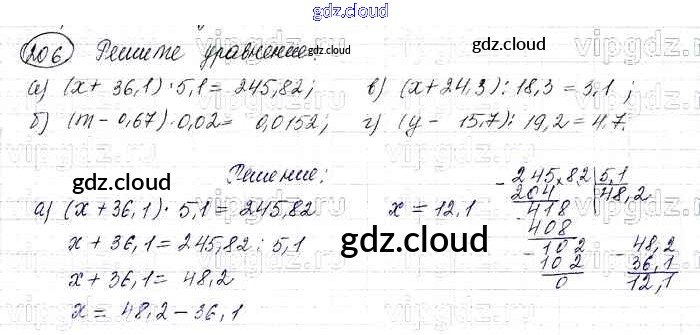 gdz.cloud
206 Решите уравнение: gdz.cloud gdz.cloud vipgdz
а) (x + 36,1) · 5,1 = 245,82; в) (x + 24,3) : 18,3 = 3,1;
б) (m − 0,67) · 0,02 = 0,0152; г) (y − 15,7) : 19,2 = 4,7.
vipgdz.com
Решение:
gdz.cloud
а) (x + 36,1) · 5,1 = 245,82 x = 12,1
x + 36,1 = 245,82 : 5,1
x + 36,1 = 48,2
x = 48,2 − 36,1
gdz.cloud
245,82 | 5,1
204 48,2
418
408
102
102
0
48,2
36,1
12,1
gdz.cloud